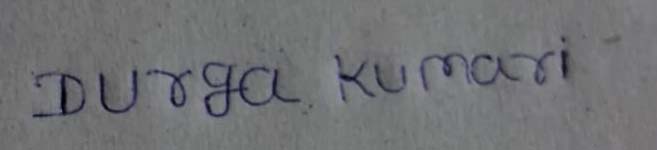 Durga Kumari